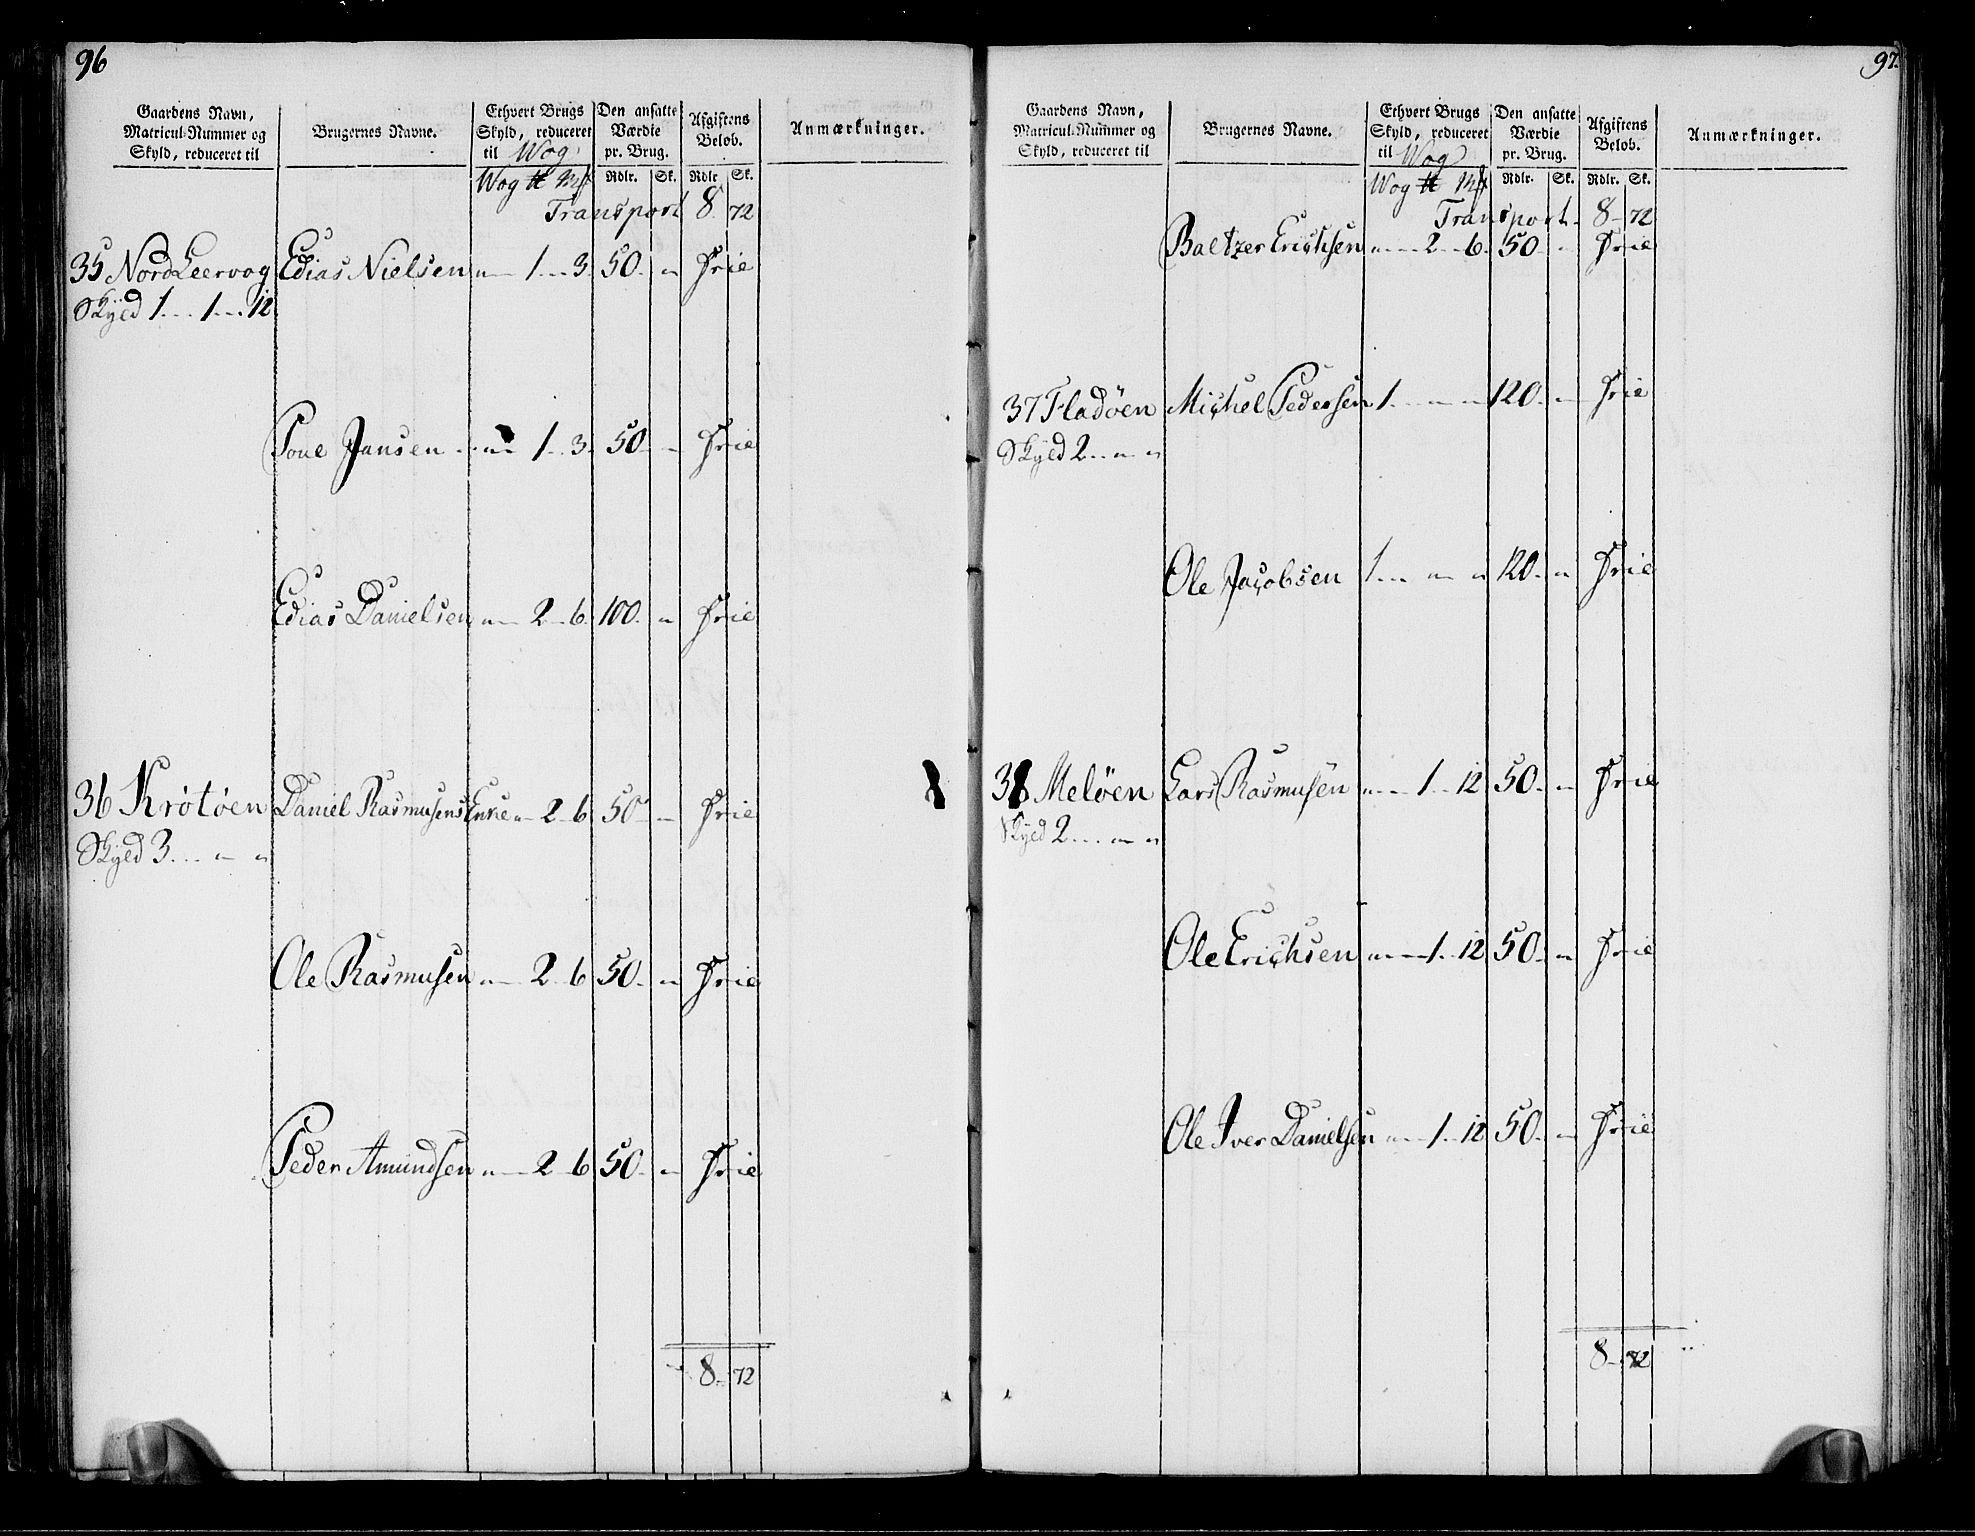 96
Gaardens Navn, Matricul-Nummer og Skyld, reduceret til | Brugernes Navne. | Ethvert Brugs Skyld, reduceret til Wog | Den ansatte Værdie pr. Brug. | Afgiftens Beløb. | Anmærkninger.
Wog ℔ Mk | Rdlr. | Sk. | Rdlr | Sk.
Transport 8 72
35 Nord Leervog Edias Nielsen " 1 3 50 " Frie
Skyld 1 1 12
Poul Jansen " 1 3 50 " Frie
Edias Danielsen " 2 6 100 " Frie
36 Krøtøen Daniel Rasmusens Enke " 2 6 50 " Frie
Skyld 3 " "
Ole Rasmusen " 2 6 50 " Frie
Peder Amundsen " 2 6 50 " Frie
8 72
97.
Gaardens Navn, Matricul-Nummer og Skyld, reduceret til | Brugernes Navne. | Ethvert Brugs Skyld, reduceret til Wog | Den ansatte Værdie pr. Brug. | Afgiftens Beløb. | Anmærkninger.
Wog ℔ Mk | Rdlr. | Sk. | Rdlr. | Sk.
Transport 8 72
Baltzer Erichsen " 2 6 50 " Frie
37 Fladöen Michel Pedersen 1 " " 120 " Frie
Skyld 2 " "
Ole Jacobsen 1 " " 120 " Frie
38 Meløen Lars Rasmusen " 1 12 50 " Frie
Skyld 2 " "
Ole Erichsen " 1 12 50 " Frie
Ole Iver Danielsen " 1 12 50 " Frie
8 72